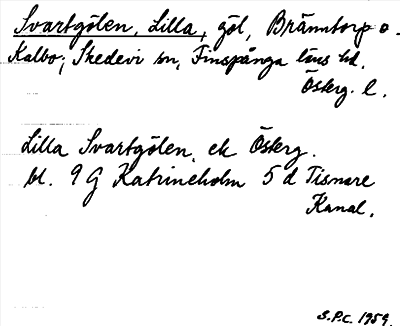 Svartgölen, Lilla, göl, Bränntorp o.
Kalbo; Skedevi sn, Finspånga läns hd.
Österg. l.
Lilla Svartgölen, ek Österg.
bl. 9 G Katrineholm 5 d Tisnare
Kanal.
S.P.C. 1959.